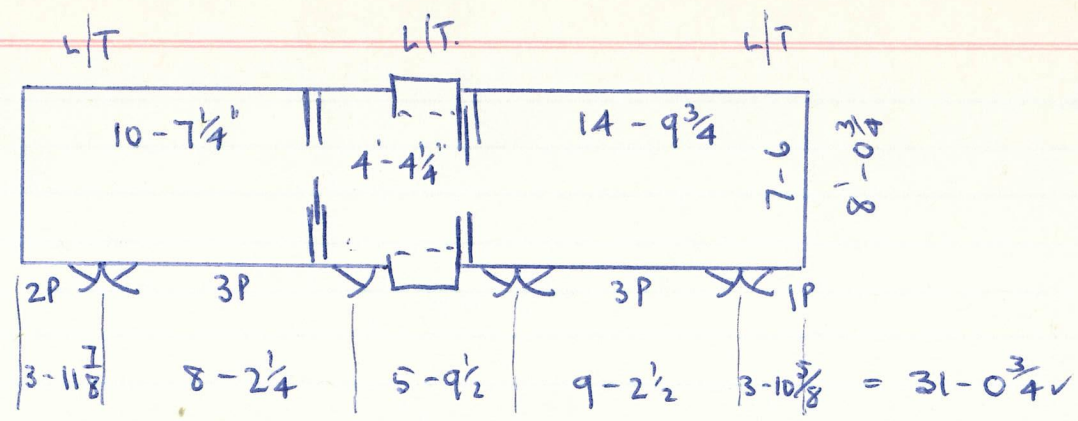 L/T L/T. L/T
10-7¼" 4'-4¼" 14-9¾ 7-6 8'-0¾
2P 3P 3P 1P
3-11⅞ 8-2¼ 5-9½ 9-2½ 3-10⅝ = 31-0¾ ✓